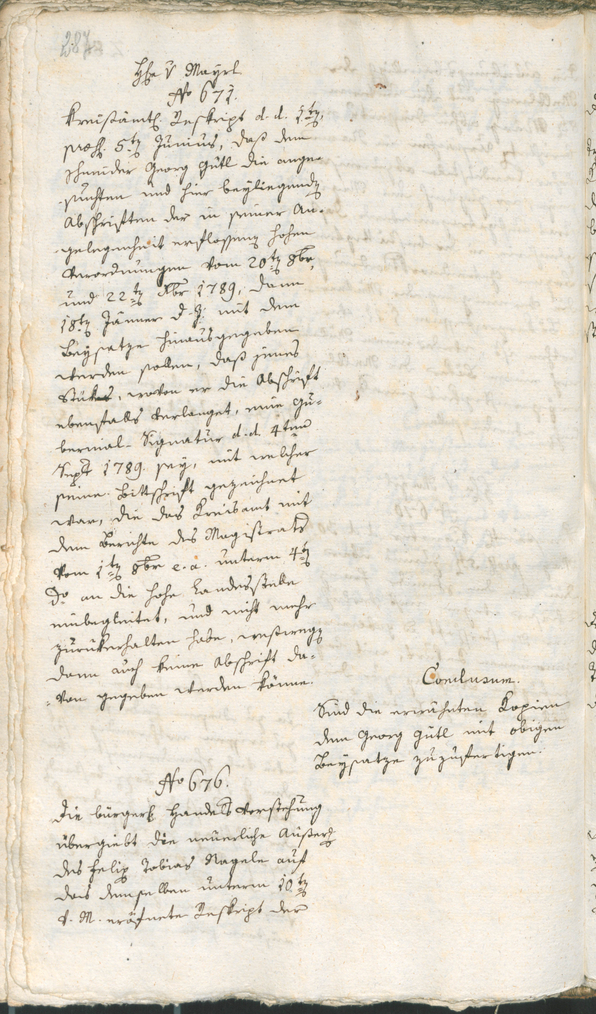 284
Hh v Mayrl
No 671.
Kreisämtl. Reskript d. d. 1ten
praes. 5ten Junius, daß dem
Schneider Georg Gütl die ange-
suchten und hier beyliegende
Abschriften der in seiner An-
gelegenheit erflossenen hohen
Verordnungen vom 20ten 8br,
und 22ten Xbr 1789, dann
18ten Jänner d. J. mit dem
Beysatze hinausgegeben
werden sollen, daß jenes
Stück, wovon er die Abschrift
ebenfalls verlanget, eine Gu-
bernial-Signatur d. d. 4ten
Sept 1789. sey, mit welcher
seine Bittschrift gezeichnet
war, die das Kreisamt mit
dem Berichte des Magistrats
vom 1ten 8br e. a. unterm 4ten
do an die hohe Landesstelle
einbegleitet, und nicht mehr
zurückerhalten habe, weßwegen
dann auch keine Abschrift da-
von gegeben werden könne.
Conclusum.
Sind die erwähnten Kopien
dem Georg Gütl mit obigen
Beysatze zuzufertigen.
No 676.
Die bürgerl Handels Vorstehung
übergiebt die neuerliche Äußerg
des Felix Tobias Nagele auf
das demselben unterm 10ten
v. M. eröfnete Reskript der